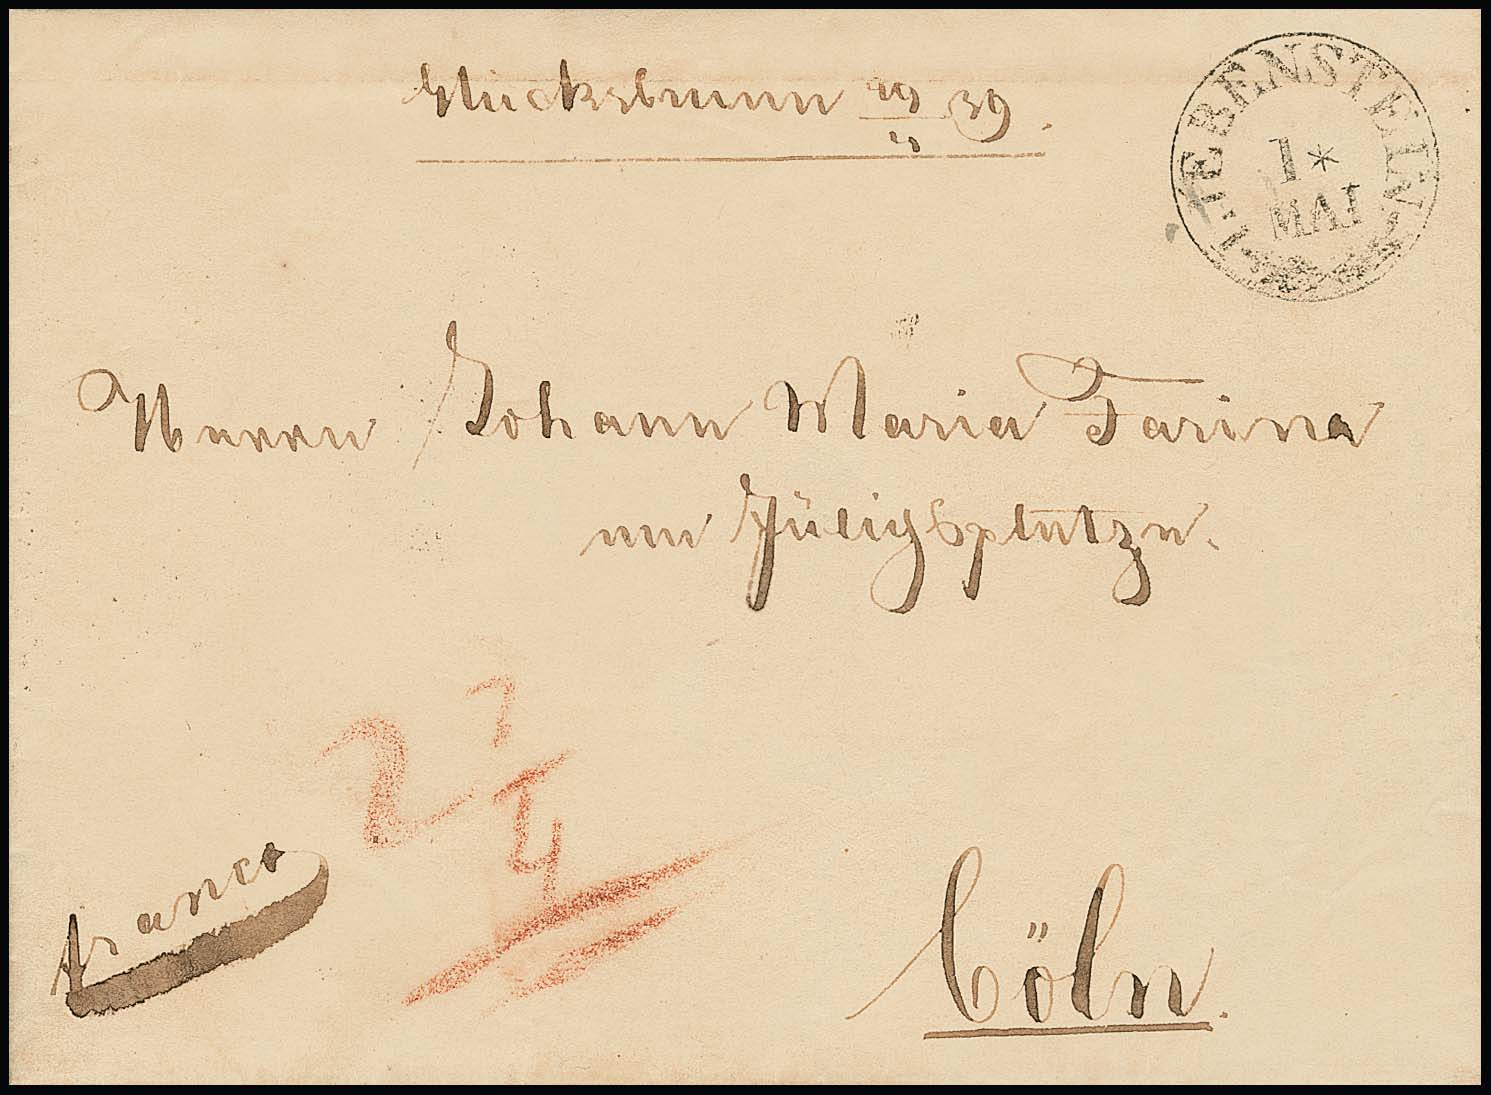 Glücksbrunn 39.
LIEBENSTEIN
1 *
MAI
Herrn Johann Maria Farina
am Jülichsplatze.
2
franco
Cöln.